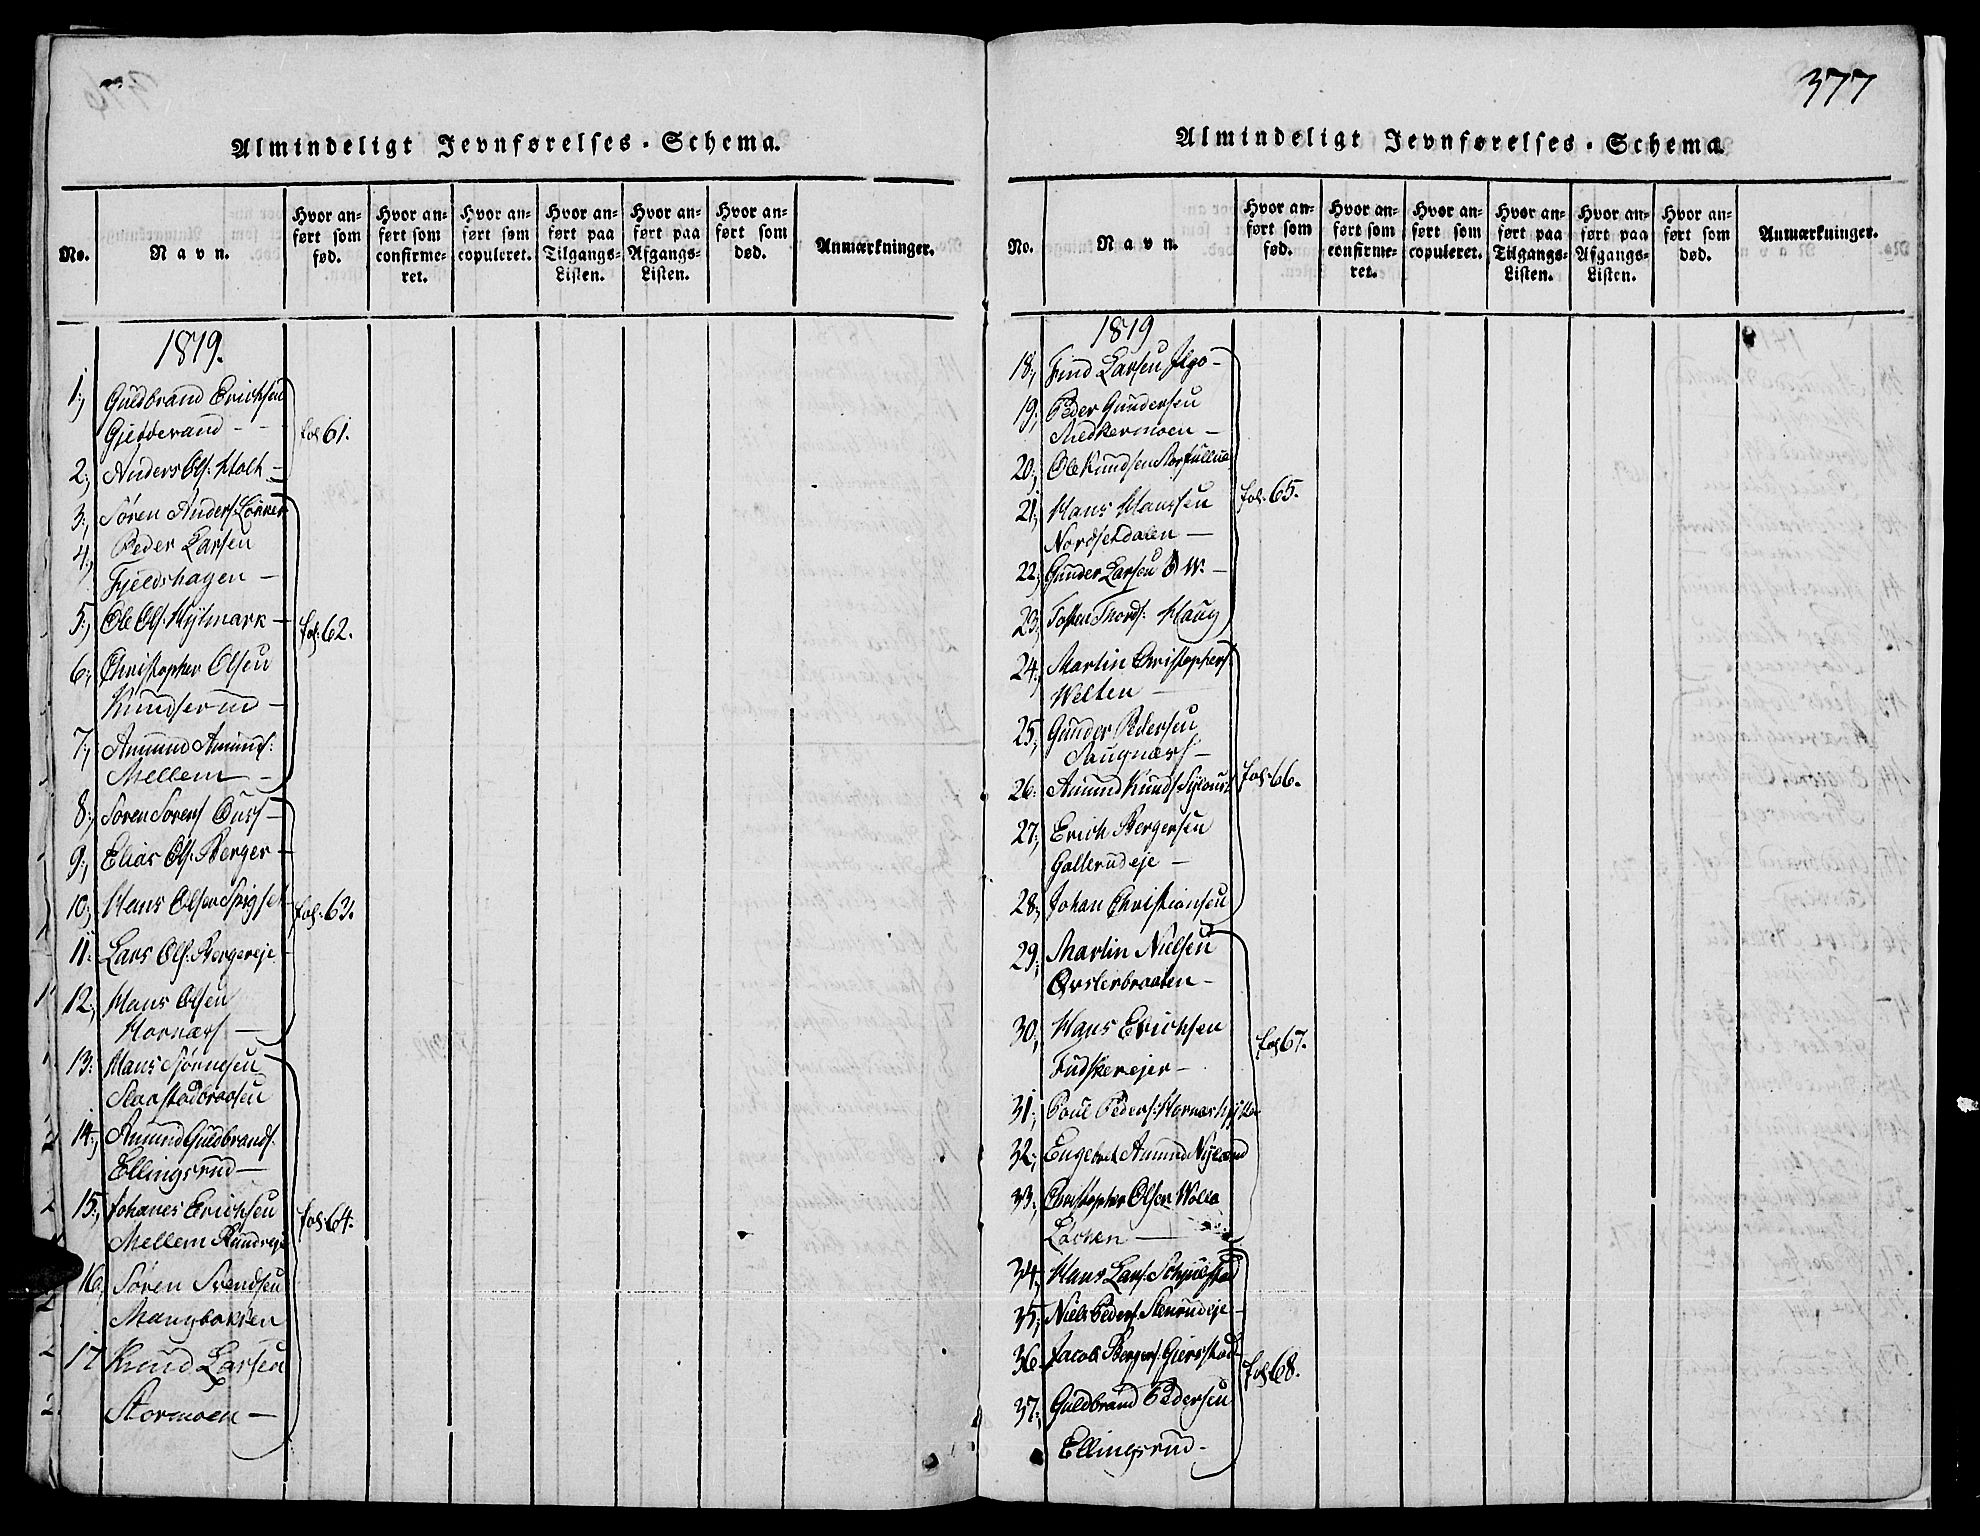 Almindeligt Jevnførelses-Schema.
No.
Navn.
Hvor anført som fød.
Hvor anført som confirmeret.
Hvor anført som copuleret.
Hvor anført paa Tilgangs-Listen.
Hvor anført paa Afgangs-Listen.
Hvor anført som død.
Anmærkninger.
1819.
1., Guldbrand Erichsen
fol 61.
2., Anders Ols: Holt -
3., Søren Anders: Løkken
4., Peder Larsen
Fjeldshagen -
5., Ole Ols: Hytmark -
fol: 62.
6., Christopher Olsen
Knudserud -
7., Amund Amunds:
Mellem -
8., Soren Sorens -
9., Elias Ols: Berger -
10., Hans Olsen
fol: 63.
11: Lars Ols: Bergereje
12., Hans Olsen
Hornæs -
13: Hans
14., Amund Guldbrands:
Ellingsrud -
15., Johanes Erichsen
Mellem
fol: 64.
16., Søren Svendsen
Haugbakken
17 Knud Larsen
Stormoen -
377
Almindeligt Jevnførelses-Schema.
No.
Navn.
Hvor anført som fød.
Hvor anført som confirmeret.
Hvor anført som copuleret.
Hvor anført paa Tilgangs-Listen.
Hvor anført paa Afgangs-Listen.
Hvor anført som død.
Anmærkninger.
1819
18., Find Larsen
19., Peder Gundersen
20., Ole Knudsen
fol: 65.
21., Hans Hanssen
Nordsetdalen -
22., Gunder Larsen
23., Tosten Thords: Haug
24., Martin Christophers:
Welten -
25., Gunder Pedersen
Haugnæss -
26: Amund Knuds
fol: 66.
27., Erich Bergersen
Gallerudeje -
28., Johan Christiansen
29., Martin Nielsen
Qvsterbraaten -
30., Hans Erichsen
fol 67.
31., Poul Peders:
32., Engebret Amund Nyland
33., Christopher Olsen
Løcken -
34., Hans Lars:
35., Niels Peders: Stenrudeje -
36. Jacob Bergers: Gierstad -
fol 68.
37., Guldbrand Pedersen
Ellingsrud -